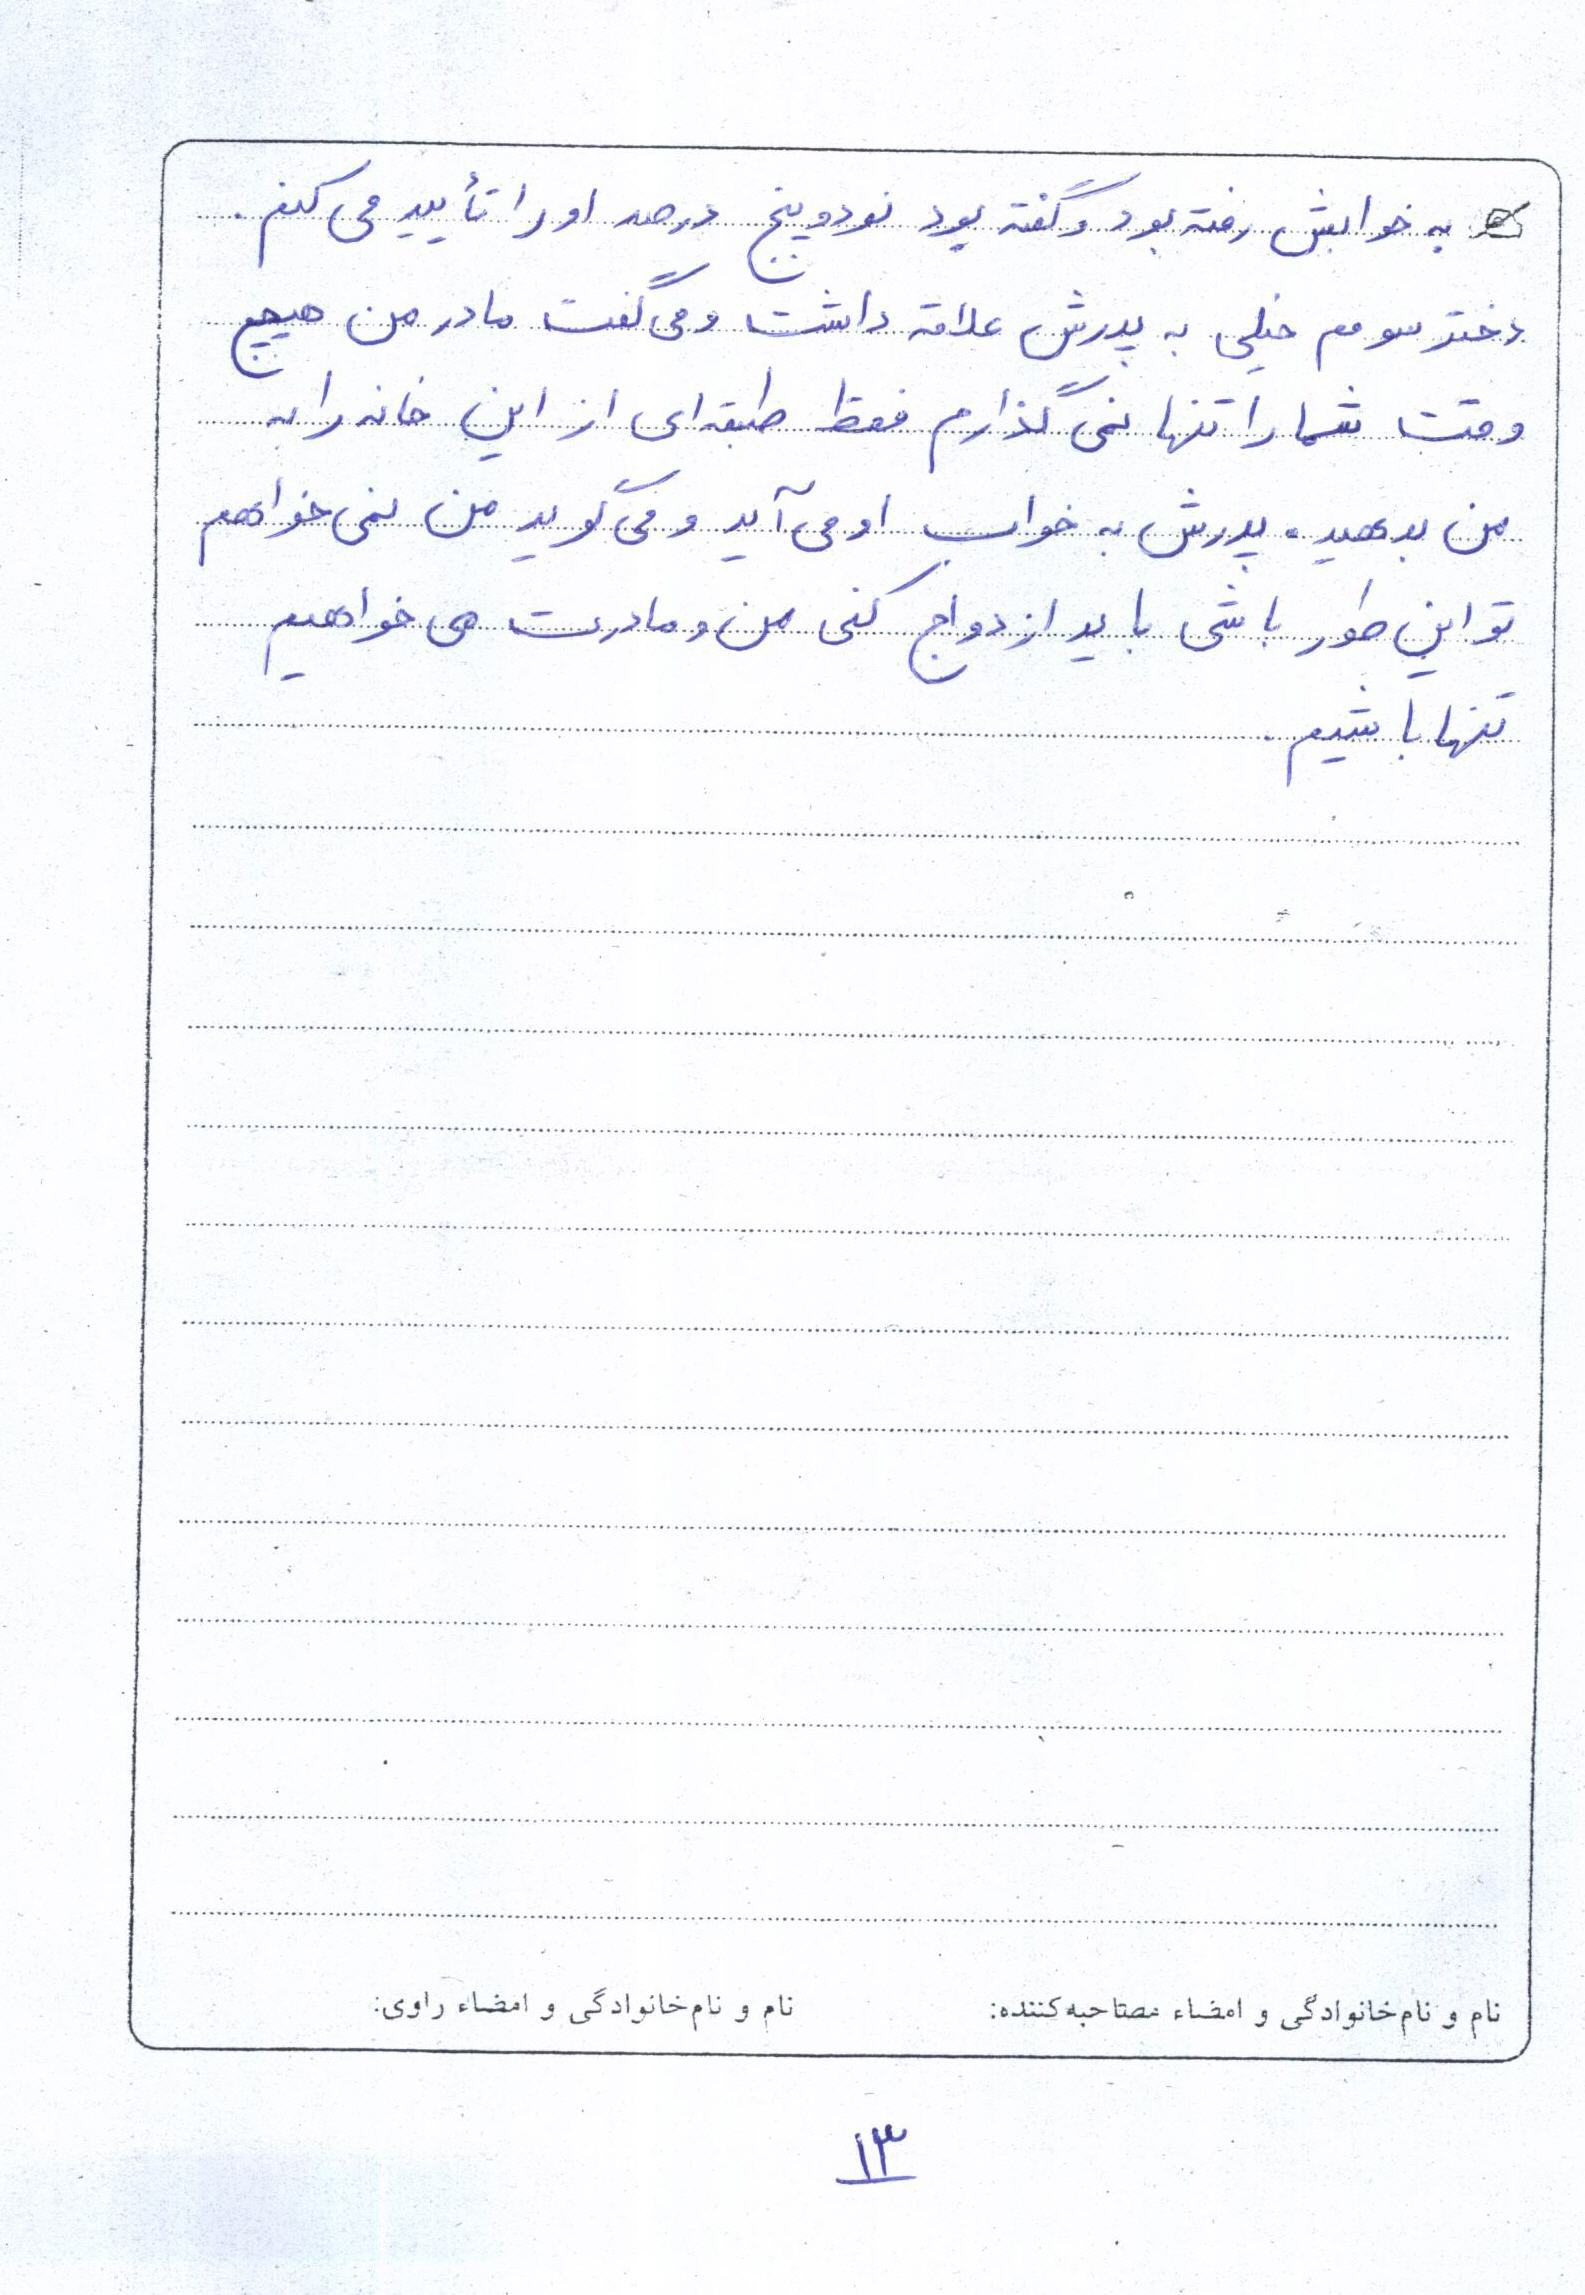 به خوابش رفته بود و گفته بود نود و پنج درصد او را تأیید می کنم.
دختر سومم خیلی به پدرش علاقه داشت و می گفت مادر من هیچ
وقت شما را تنها نمی گذارم فقط طبقه ای از این خانه را به
من بدهید. پدرش به خواب او می آید و می گوید من نمی خواهم
تو این طور باشی باید ازدواج کنی من و مادرت می خواهیم
تنها باشیم.
نام و نام‌خانوادگی و امضاء مصاحبه‌کننده: نام و نام‌خانوادگی و امضاء راوی:
۱۳